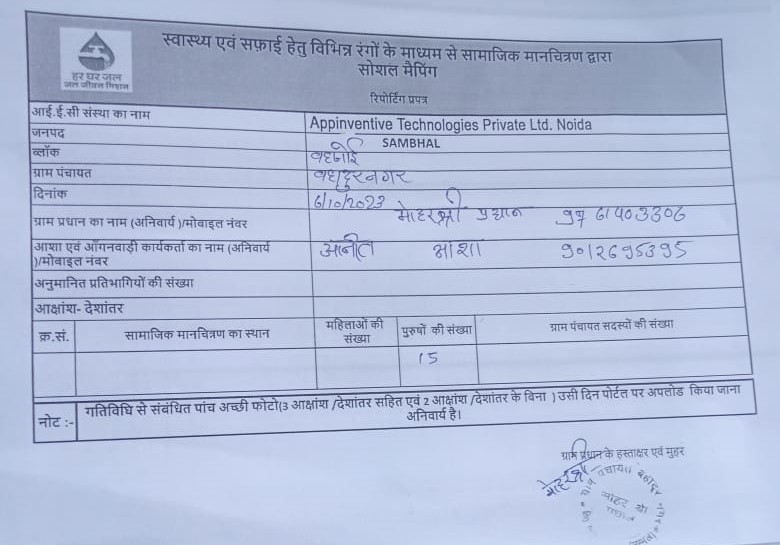 स्वास्थ्य एवं सफ़ाई हेतु विभिन्न रंगों के माध्यम से सामाजिक मानचित्रण द्वारा
सोशल मैपिंग
हर घर जल
जल जीवन मिशन
रिपोर्टिंग प्रपत्र
आई.ई.सी संस्था का नाम Appinventive Technologies Private Ltd. Noida
जनपद SAMBHAL
ब्लॉक बहजोई
ग्राम पंचायत बहादुरनगर
दिनांक 6/10/2023
ग्राम प्रधान का नाम (अनिवार्य )/मोबाइल नंबर मोहरश्री प्रधान
आशा एवं आँगनवाड़ी कार्यकर्ता का नाम (अनिवार्य
)/मोबाइल नंबर आशा 9012695395
अनुमानित प्रतिभागियों की संख्या
आक्षांश- देशांतर
क्र.सं. सामाजिक मानचित्रण का स्थान महिलाओं की संख्या पुरुषों की संख्या ग्राम पंचायत सदस्यों की संख्या
15
नोट :- गतिविधि से संबंधित पांच अच्छी फोटो(3 आक्षांश /देशांतर सहित एवं 2 आक्षांश /देशांतर के बिना ) उसी दिन पोर्टल पर अपलोड किया जाना
अनिवार्य है।
ग्राम प्रधान के हस्ताक्षर एवं मुहर
मोहरश्री